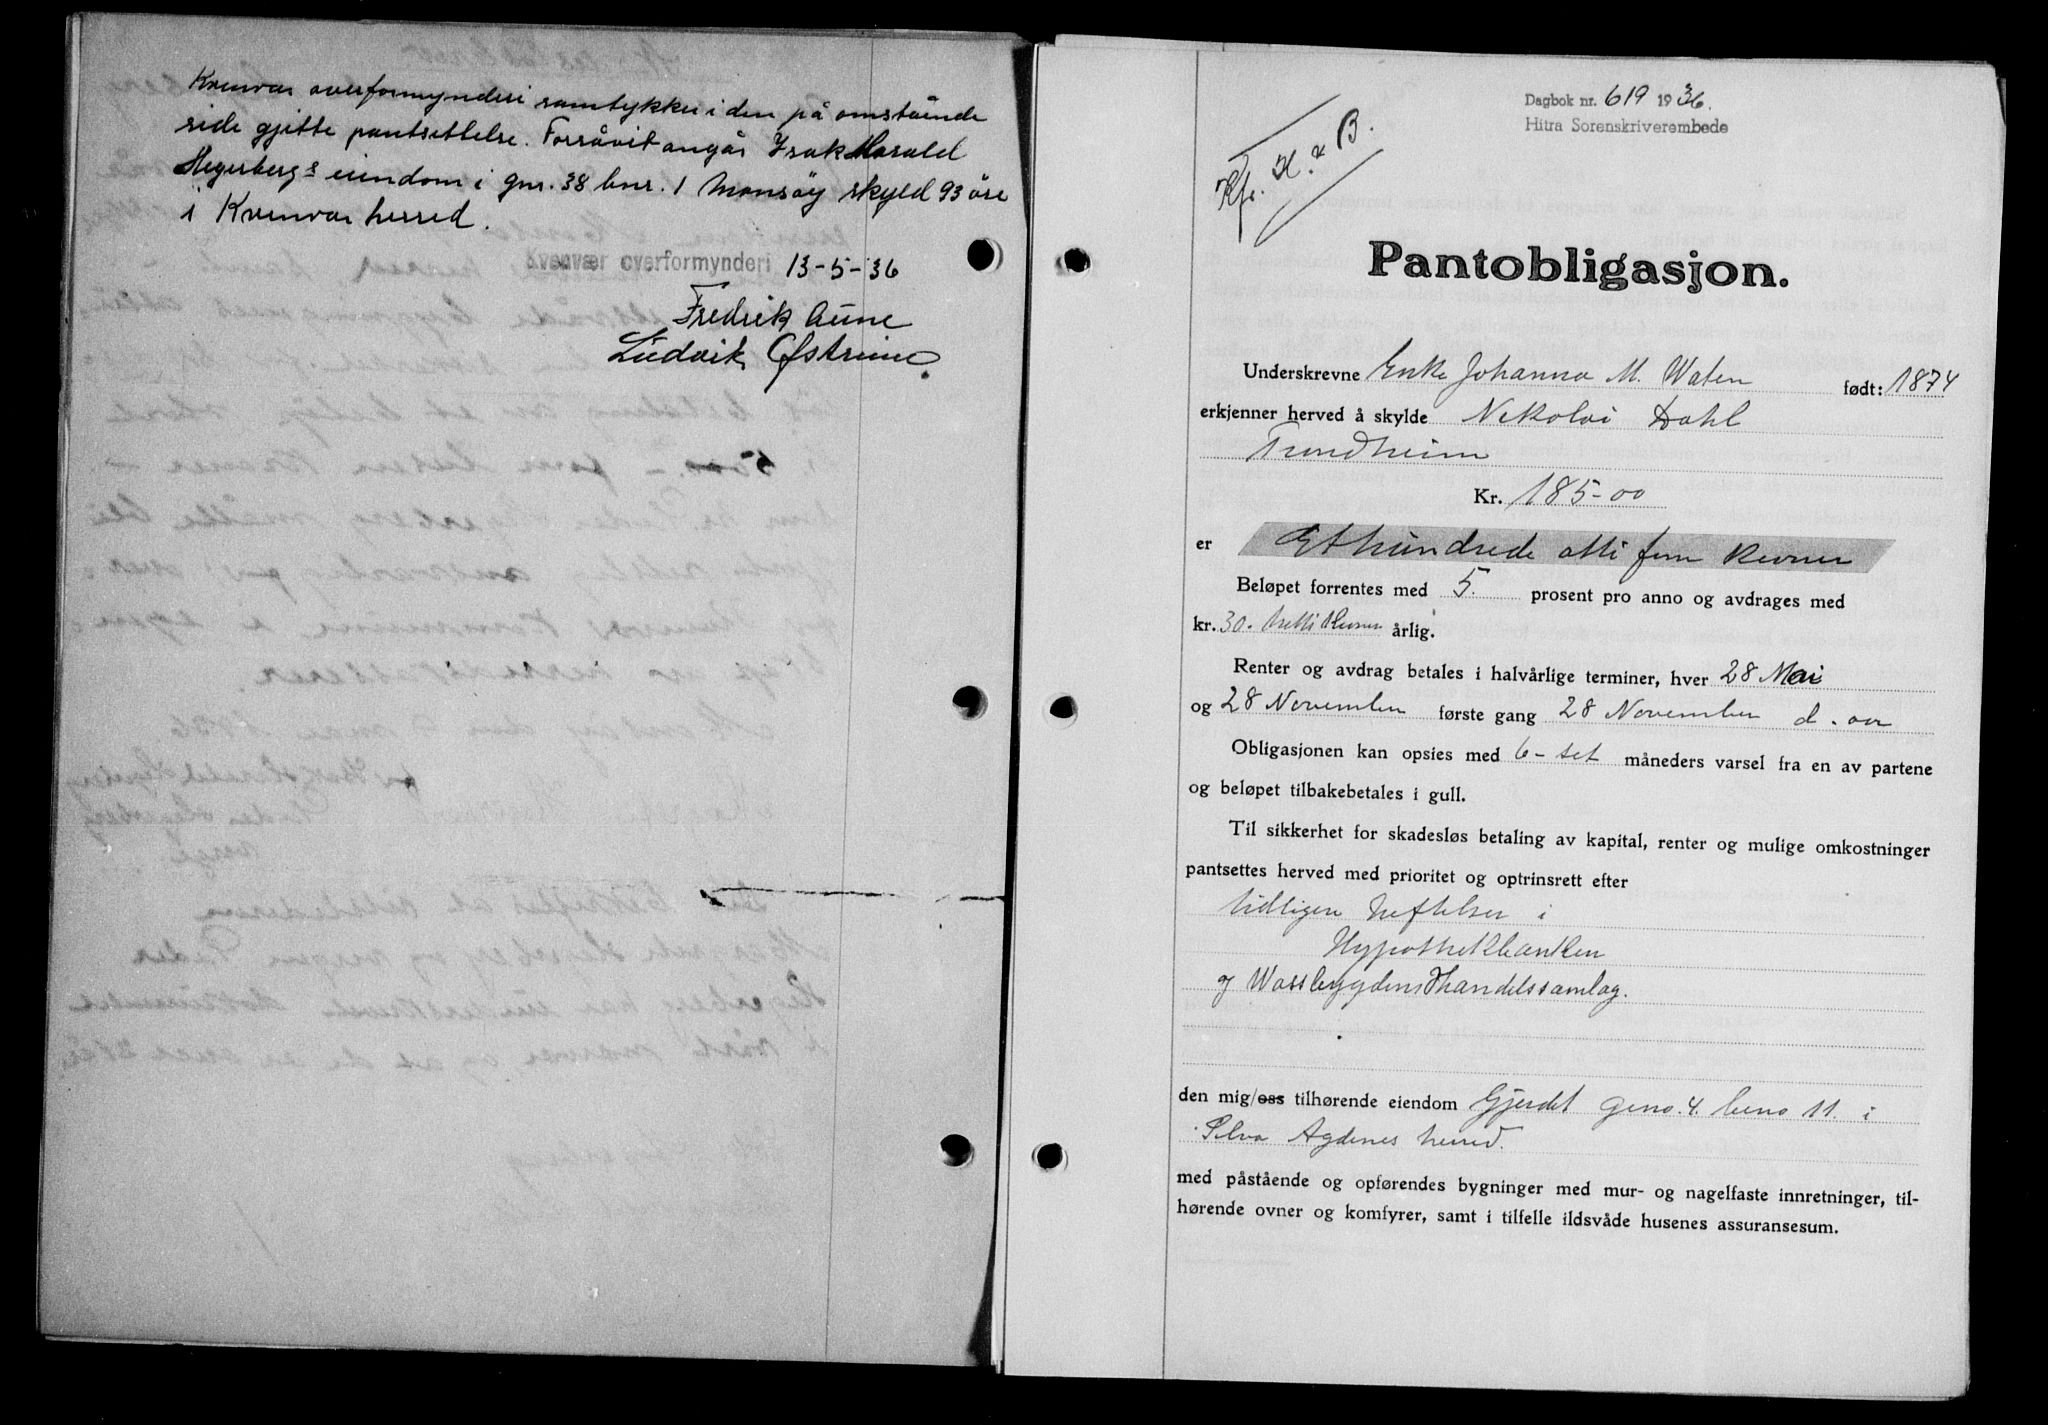 Kvenvær overformynderi samtykker i den på omstående
side gjitte pantsettelse. Forsåvit angår Isak Harald
Hegerbergs eiendom i gnr. 38 bnr. 1 Monsøy skyld 93 öre
i Kvenvær herred.
Kvenvær overformynderi 13-5-36
Fredrik Aune
Ludvik Østrem
Dagbok nr. 619 1936.
Hitra Sorenskriverembede
Kfr. H. & B.
Pantobligasjon.
Underskrevne Enke Johanna M. Waten født: 1874
erkjenner herved å skylde Nikolai Dahl
Trondheim
Kr. 185-00
er Ethundrede otti fem kroner
Beløpet forrentes med 5. prosent pro anno og avdrages med
kr. 30. tretti kroner årlig.
Renter og avdrag betales i halvårlige terminer, hver 28 Mai
og 28 November første gang 28 November d. aar
Obligasjonen kan opsies med 6- set måneders varsel fra en av partene
og beløpet tilbakebetales i gull.
Til sikkerhet for skadesløs betaling av kapital, renter og mulige omkostninger
pantsettes herved med prioritet og optrinsrett efter
tidligere heftelser i
Hypothekbanken
og Wassbygdens Handelssamlag.
den mig/oss tilhørende eiendom Gjerdet gno. 4. bno 11. i
Selva Agdenes herred.
med påstående og opførendes bygninger med mur- og nagelfaste innretninger, til-
hørende ovner og komfyrer, samt i tilfelle ildsvåde husenes assuransesum.